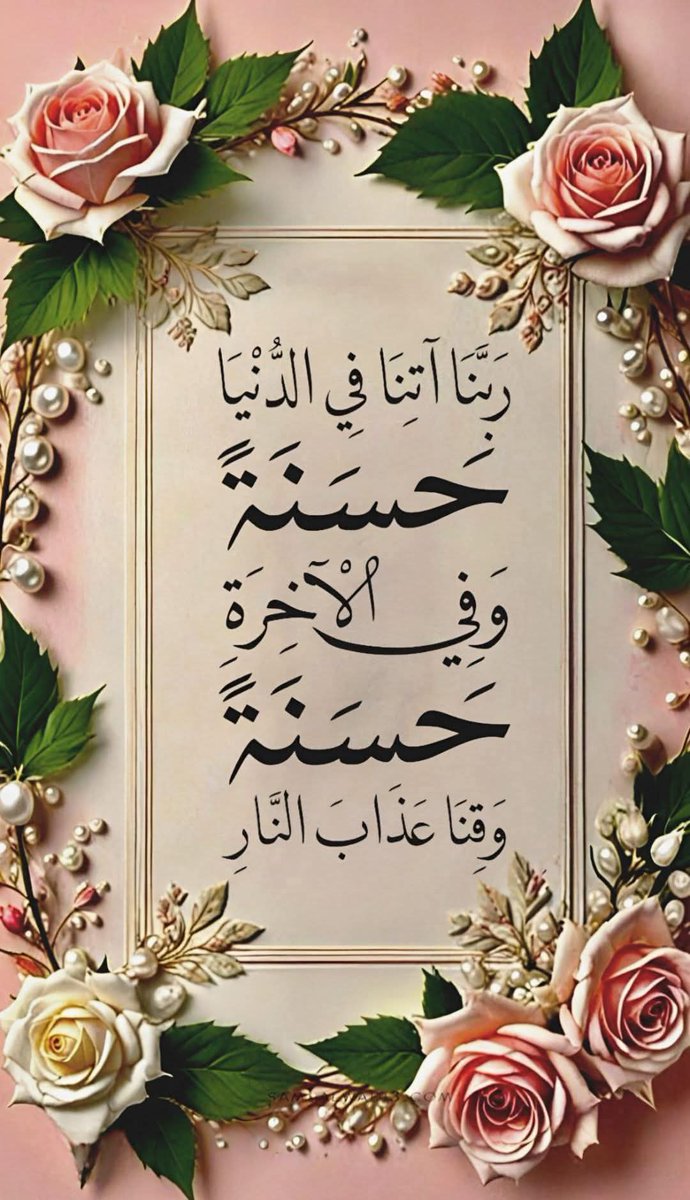 رَبَّنَا آتِنَا فِي الدُّنْيَا
حَسَنَةً
وَفِي الْآخِرَةِ
حَسَنَةً
وَقِنَا عَذَابَ النَّارِ